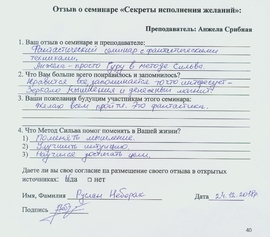 Отзыв о семинаре «Секреты исполнения желаний»:
Преподаватель: Анжела Србиан
1. Ваш отзыв о семинаре и преподавателе:
Фантастический семинар с фантастическими
техниками,
Анжела - просто Гуру в методе Сильва.
2. Что Вам больше всего понравилось и запомнилось?
Нравится все запомнилось что интересно -
Зеркало мышления и денежный магнит
3. Ваши пожелания будущим участникам этого семинара:
Желаю всем пройти. Это фантастика.
4. Что Метод Сильва помог поменять в Вашей жизни?
1) Поменять мышление.
2) Улучшить интуицию.
3) Научился достигать цели.
Даете ли вы свое согласие на размещение своего отзыва в открытых
источниках: да □ нет
Имя, Фамилия Руслан Неборак Дата 24.12.2017г
Подпись
40